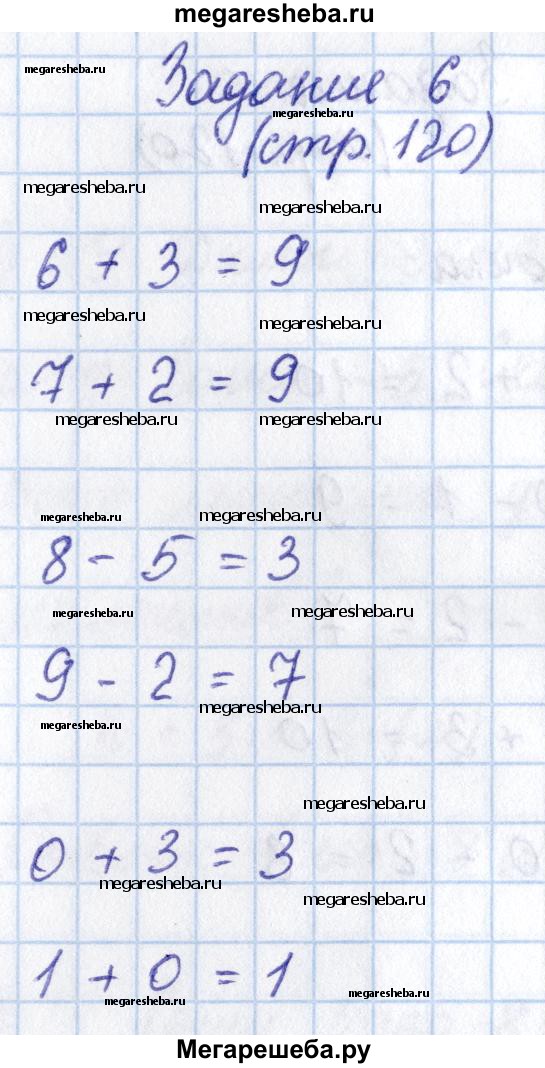 megaresheba.ru
megaresheba.ru
Задание 6
megaresheba.ru
(стр. 120)
megaresheba.ru
megaresheba.ru
6 + 3 = 9
megaresheba.ru
megaresheba.ru
7 + 2 = 9
megaresheba.ru
megaresheba.ru
megaresheba.ru
megaresheba.ru
8 - 5 = 3
megaresheba.ru
megaresheba.ru
9 - 2 = 7
megaresheba.ru
megaresheba.ru
megaresheba.ru
0 + 3 = 3
megaresheba.ru
megaresheba.ru
1 + 0 = 1
megaresheba.ru
megaresheba.ru
Мегарешеба.ру